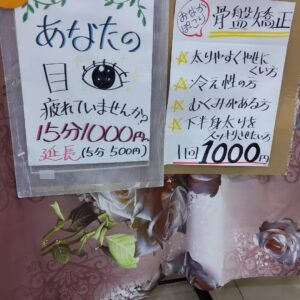 あなたの
目
疲れていませんか?
15分1000円
延長(5分500円)
おなか
ぽっこり
骨盤矯正
☆太りやすくやせに
くい方
☆冷え性の方
☆むくみがある方
☆下半身太りを
スッキリさせたい
方
1回1000円